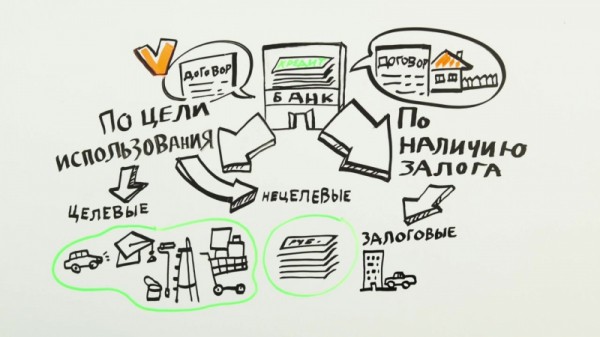 ДОГОВОР
КРЕДИТ
БАНК
ДОГОВОР
ПО ЦЕЛИ
ИСПОЛЬЗОВАНИЯ
ПО
НАЛИЧИЮ
ЗАЛОГА
ЦЕЛЕВЫЕ
НЕЦЕЛЕВЫЕ
ЗАЛОГОВЫЕ
РУБ.